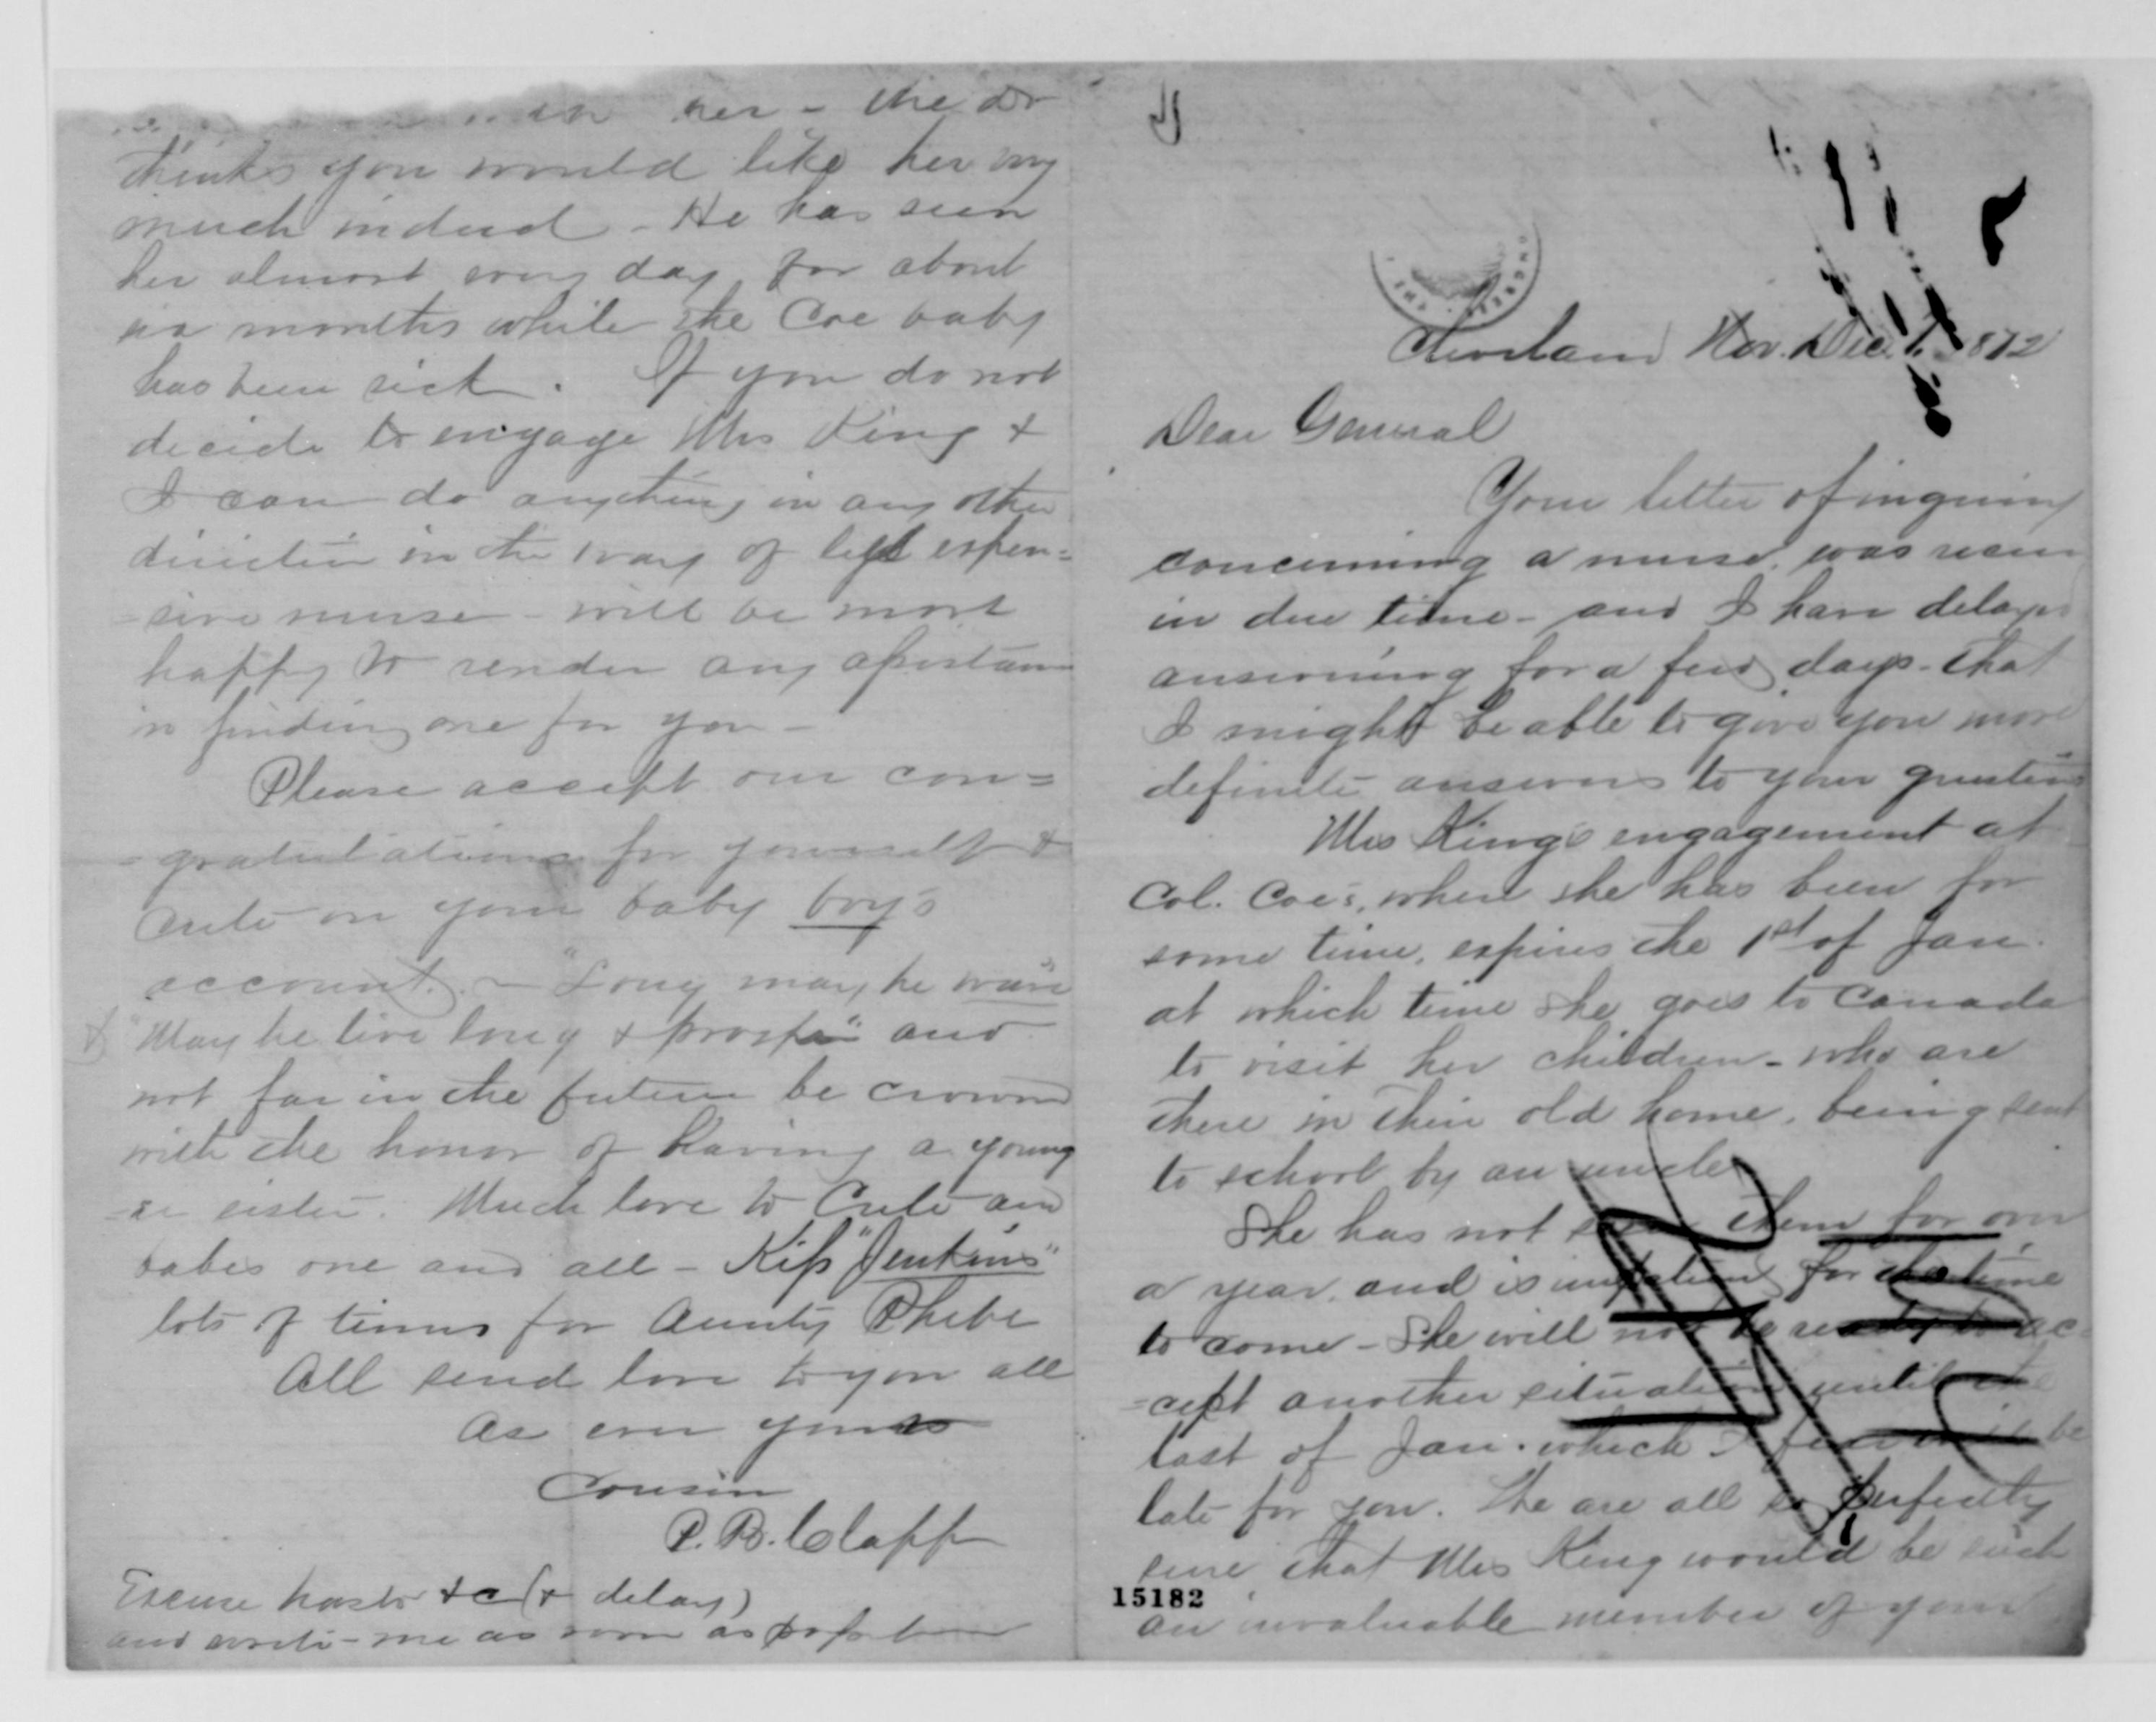 Cleveland Nov. Dec. 1. 1872
Dear General
Your letter of inquiry
concerning a nurse, was receiv
in due time - and I have delayed
answering for a few days - that
I might be able to give you more
definite answers to your questions
Mrs King's engagement at
Col. Coe's, where she has been for
some time, expires the 1st of Jan.
at which time she goes to Canada
to visit her children - who are
there in their old home, being sent
to school by an uncle
She has not seen them for over
a year, and is impatient for the time
to come - She will not be ready to ac-
=cept another situation until the
last of Jan. which I fear will be
late for you. We are all so perfectly
sure that Mrs King would be such
an invaluable member of your
15182
her - the dr
thinks you would like her very
much indeed - He has seen
her almost every day, for about
six months while the Coe baby
has been sick. If you do not
decide to engage Mrs King &
I can do anything in any other
direction in the way of less expen=
=sive nurse - will be most
happy to render any assistance
in finding one for you -
Please accept our con=
=gratulations for yourself &
Crete on your baby boy's
account. - "Long may he wave"
& "May he live long & prosper" and
not far in the future be crowned
with the honor of having a young
=er sister. Much love to Crete and
babes one and all - Kiss "Jenkins"
lots of times for Aunty Phebe
All send love to you all
As ever yours
Cousin
P. B. Clapp
Excuse haste &c (& delay)
and write me as soon as possible